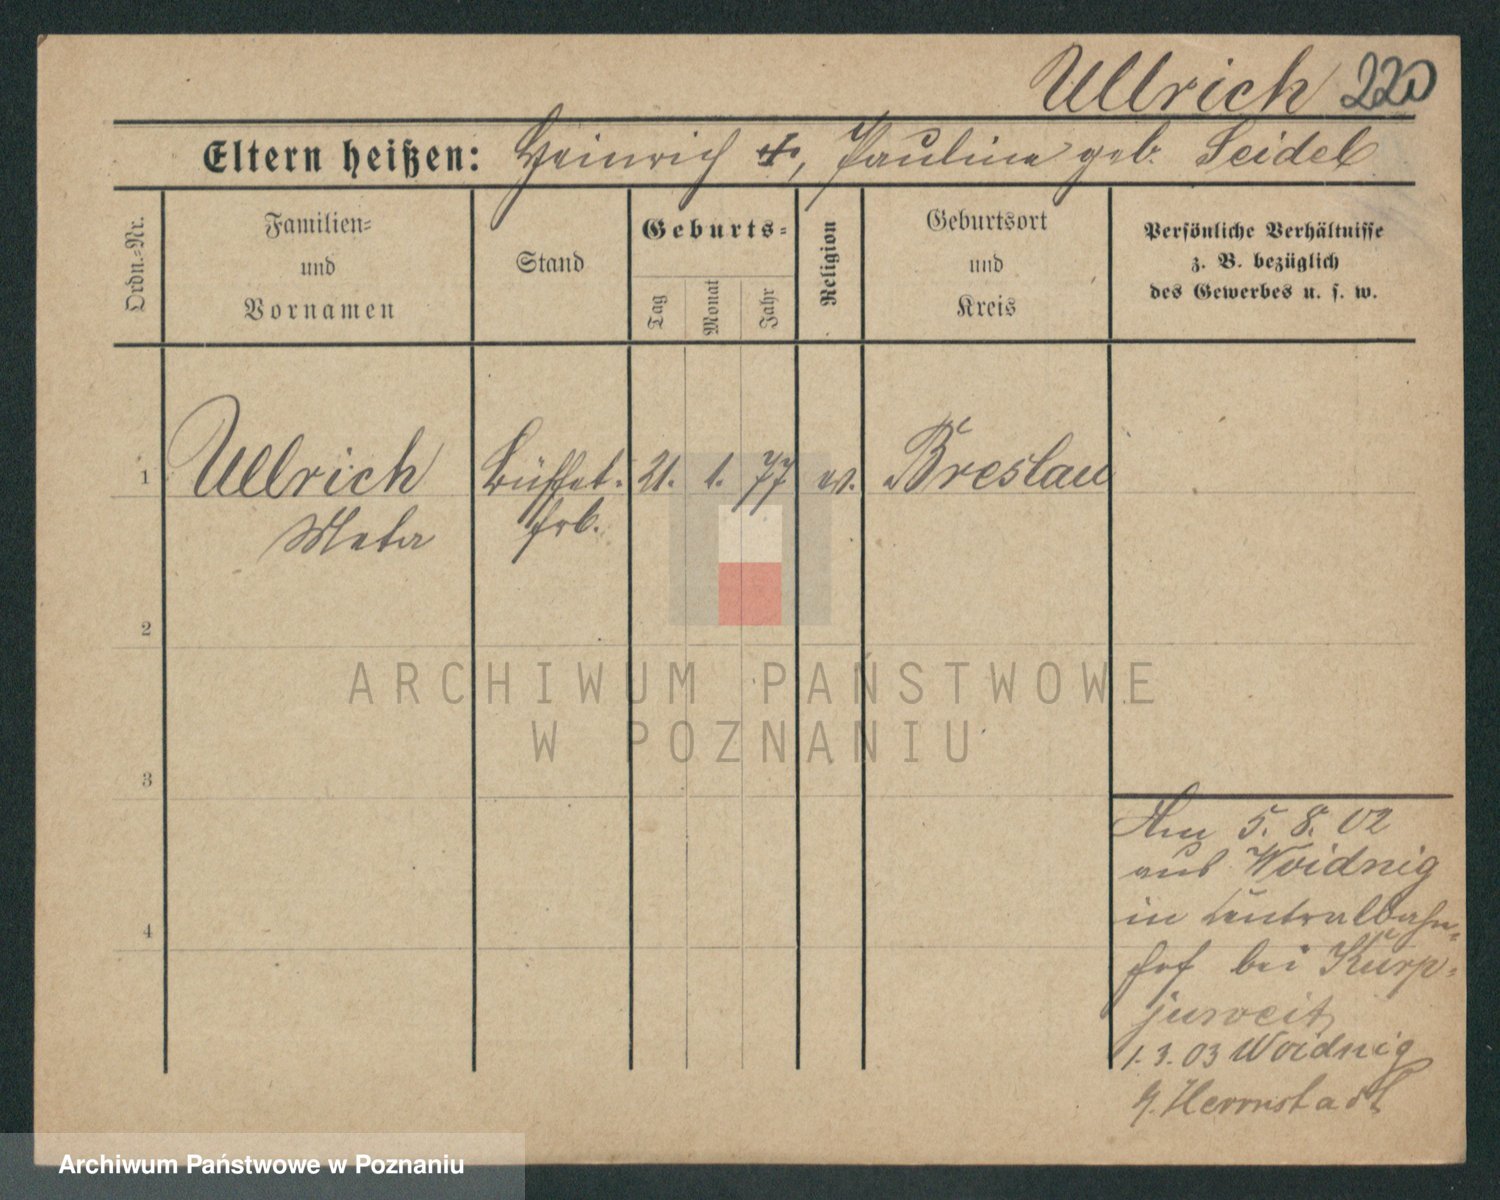 Ullrich 220
Eltern heißen: Heinrich †, Pauline geb. Seidel
Ordn.-Nr.
Familien-
und
Vornamen
Stand
Geburts-
Tag
Monat
Jahr
Religion
Geburtsort
und
Kreis
Persönliche Verhältnisse
z. B. bezüglich
des Gewerbes u. s. w.
1 Ullrich Büffet- 21. 1. 77 ev. Breslau
Meta frl.
2
3
4
Am 5. 8. 02
aus Woidnig
in Centralbahn-
hof bei Kurp-
juweit
1. 3. 03 Woidnig
Herrnstadt
ARCHIWUM PAŃSTWOWE
W POZNANIU
Archiwum Państwowe w Poznaniu